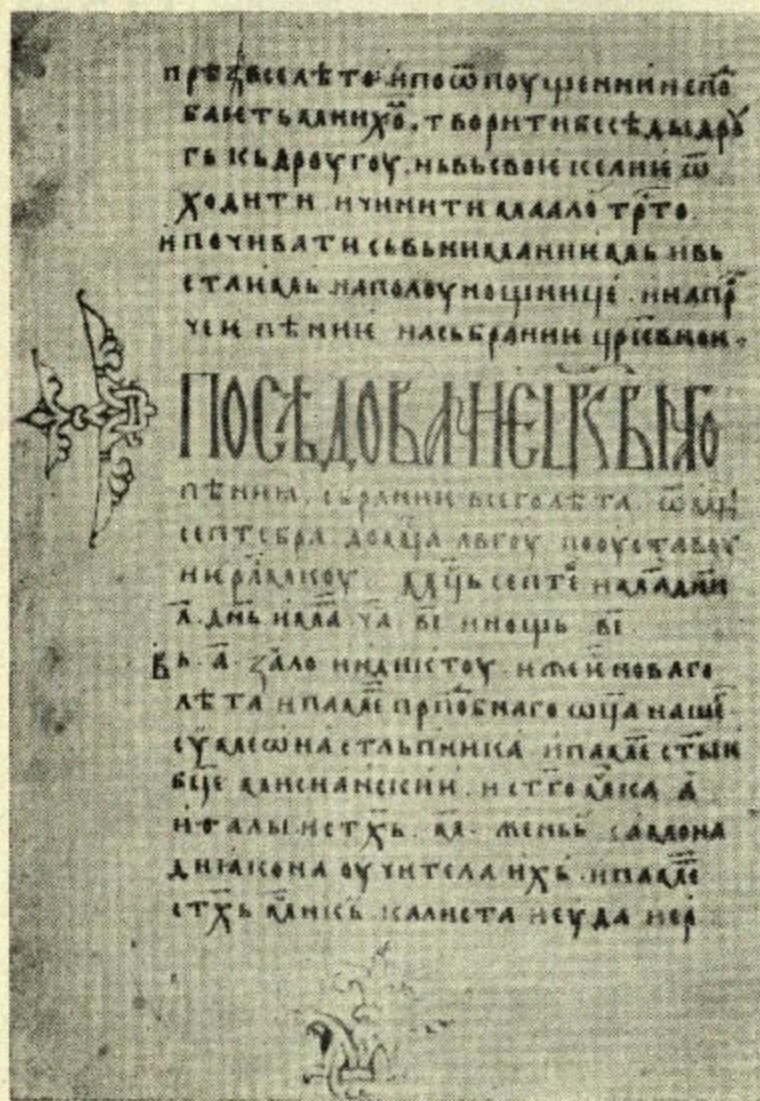 прѣзвсе лѣто · и по ѿпоущении не по
баеть мнихо̑м · творити бесѣды дрѹ
гь кь дроугоу · нь вь свое келие ѿ
ходити и чинити маало трⷣто
и почивати сь вьниманиѥмь и вь
станиѥмь на полоунощнице · и на пр
чеѥ пѣниѥ на сьбрании црⷦ҇ѡвнои ·
ПОСЛѢДОВАНЇЕ ЦРКВНАГО
пѣниꙗ · сьбраниꙗ всего лѣта · ѿ мцⷭ҇а
септебра · до мцⷭ҇а авгоу по оуставоу
иѥрⷭ҇лимскоу · мцⷭ҇ь септеⷨ · имⷶ дни
л҃ · днь има чⷶ в҃і · и нощь в҃і ·
Вь · а҃ · зало индиктоу · иже ѥ новаго
лѣта · и памеⷮ прпⷣобнаго ѡц҃а наше
сѵмеѡна стльпника · и памеⷮ стыѥ
бц҃е миисинскиѥ · и стго мⷱка а
итала · и стхь · м҃ · жень · амона
диꙗкона оучитела ихь · и памеⷮ
стхь мⷱнкь · калиста и еуда · и ер